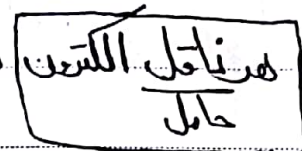 هو ناقل الكترون
حامل